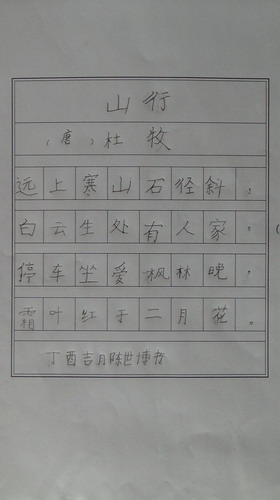 山行
(唐)杜牧
远上寒山石径斜,
白云生处有人家。
停车坐爱枫林晚,
霜叶红于二月花。
丁酉吉月陈世博书